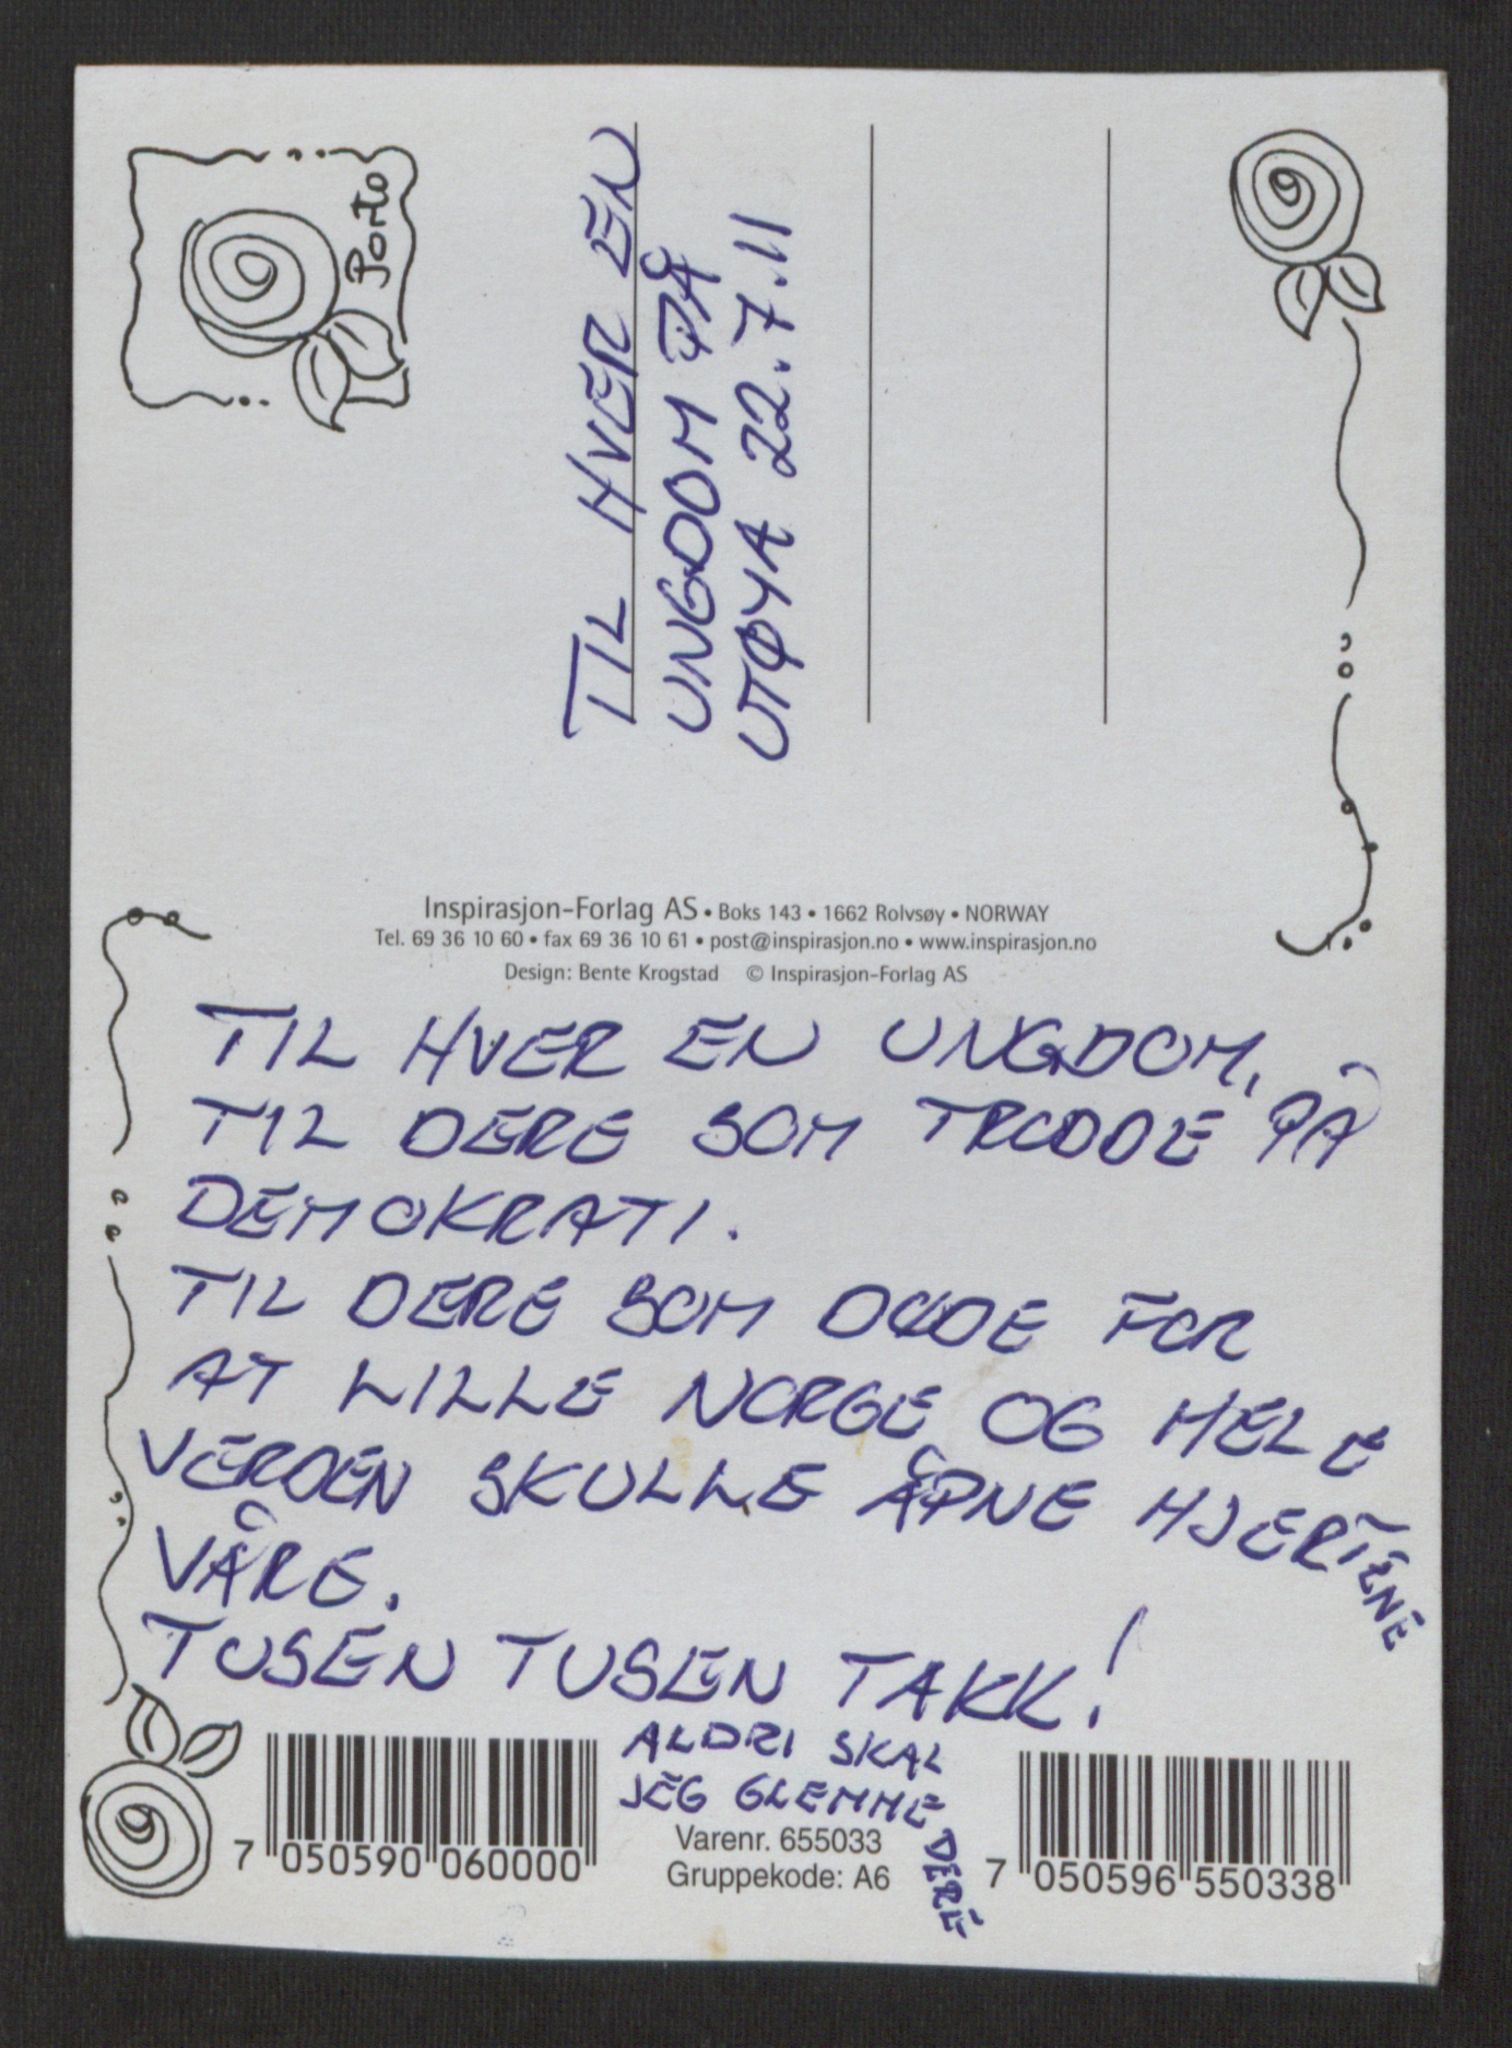 Porto
TIL HVER EN
UNGDOM PÅ
UTØYA 22.7.11
Inspirasjon-Forlag AS • Boks 143 • 1662 Rolvsøy • NORWAY
Tel. 69 36 10 60 • fax 69 36 10 61 • post@inspirasjon.no • www.inspirasjon.no
Design: Bente Krogstad © Inspirasjon-Forlag AS
TIL HVER EN UNGDOM,
TIL DERE SOM TRODDE PÅ
DEMOKRATI.
TIL DERE SOM DØDE FOR
AT LILLE NORGE OG HELE
VERDEN SKULLE ÅPNE HJERTENE
VÅRE.
TUSEN TUSEN TAKK!
ALDRI SKAL
JEG GLEMME DERE
Varenr. 655033
Gruppekode: A6
7 050590 060000
7 050596 550338